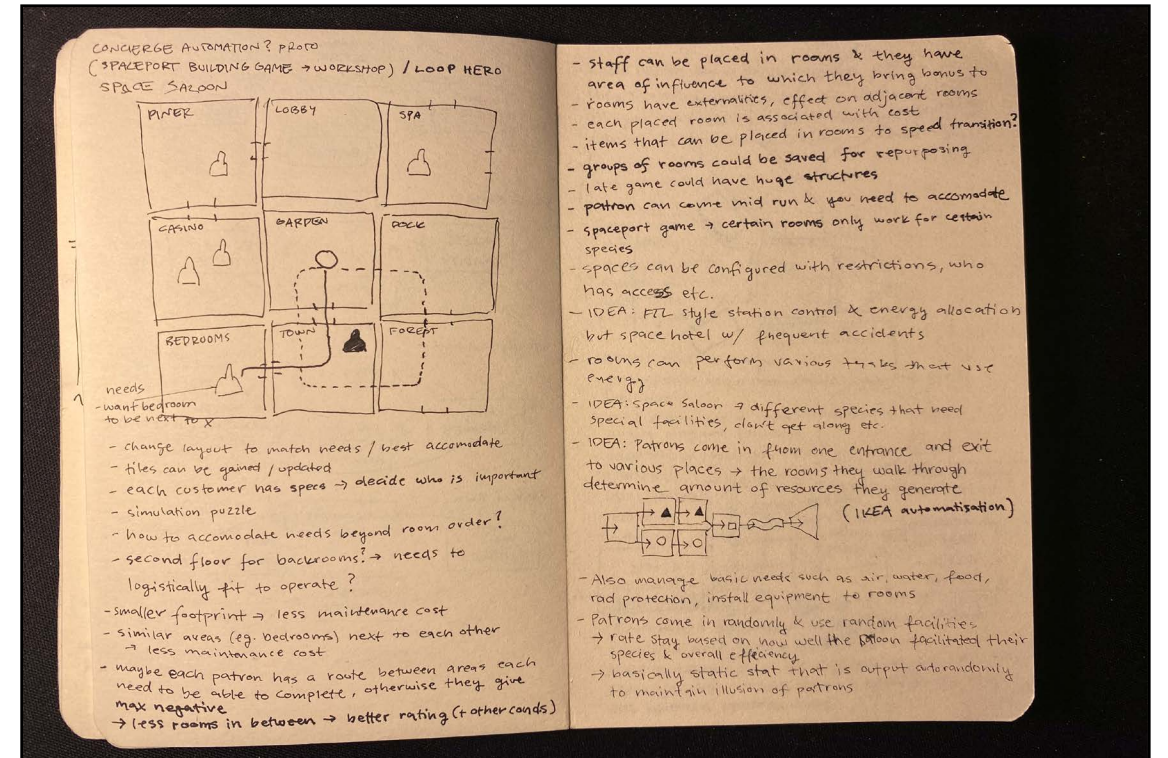 CONCIERGE AUTOMATION? PROTO
(SPACEPORT BUILDING GAME → WORKSHOP) / LOOP HERO
SPACE SALOON
DINER
LOBBY
SPA
CASINO
GARDEN
DOCK
BEDROOMS
TOWN
FOREST
needs
- want bedroom
to be next to x
- change layout to match needs / best accomodate
- tiles can be gained / updated
- each customer has specs → decide who is important
- simulation puzzle
- how to accomodate needs beyond room order?
- second floor for backrooms? → needs to
logistically fit to operate?
- smaller footprint → less maintenance cost
- similar areas (eg. bedrooms) next to each other
→ less maintenance cost
- maybe each patron has a route between areas each
need to be able to complete, otherwise they give
max negative
→ less rooms in between → better rating (+ other conds)
- staff can be placed in rooms & they have
area of influence to which they bring bonus to
- rooms have externalities, effect on adjacent rooms
- each placed room is associated with cost
- items that can be placed in rooms to speed transition?
- groups of rooms could be saved for repurposing
- late game could have huge structures
- patron can come mid run & you need to accomodate
- spaceport game → certain rooms only work for certain
species
- spaces can be configured with restrictions, who
has access etc.
- IDEA: FTL style station control & energy allocation
but space hotel w/ frequent accidents
- rooms can perform various tasks that use
energy
- IDEA: Space Saloon → different species that need
special facilities, don't get along etc.
- IDEA: Patrons come in from one entrance and exit
to various places → the rooms they walk through
determine amount of resources they generate
(IKEA automatisation)
- Also manage basic needs such as air, water, food,
rad protection, install equipment to rooms
- Patrons come in randomly & use random facilities
→ rate stay based on how well the saloon facilitated their
species & overall efficiency
→ basically static stat that is output
to maintain illusion of patrons